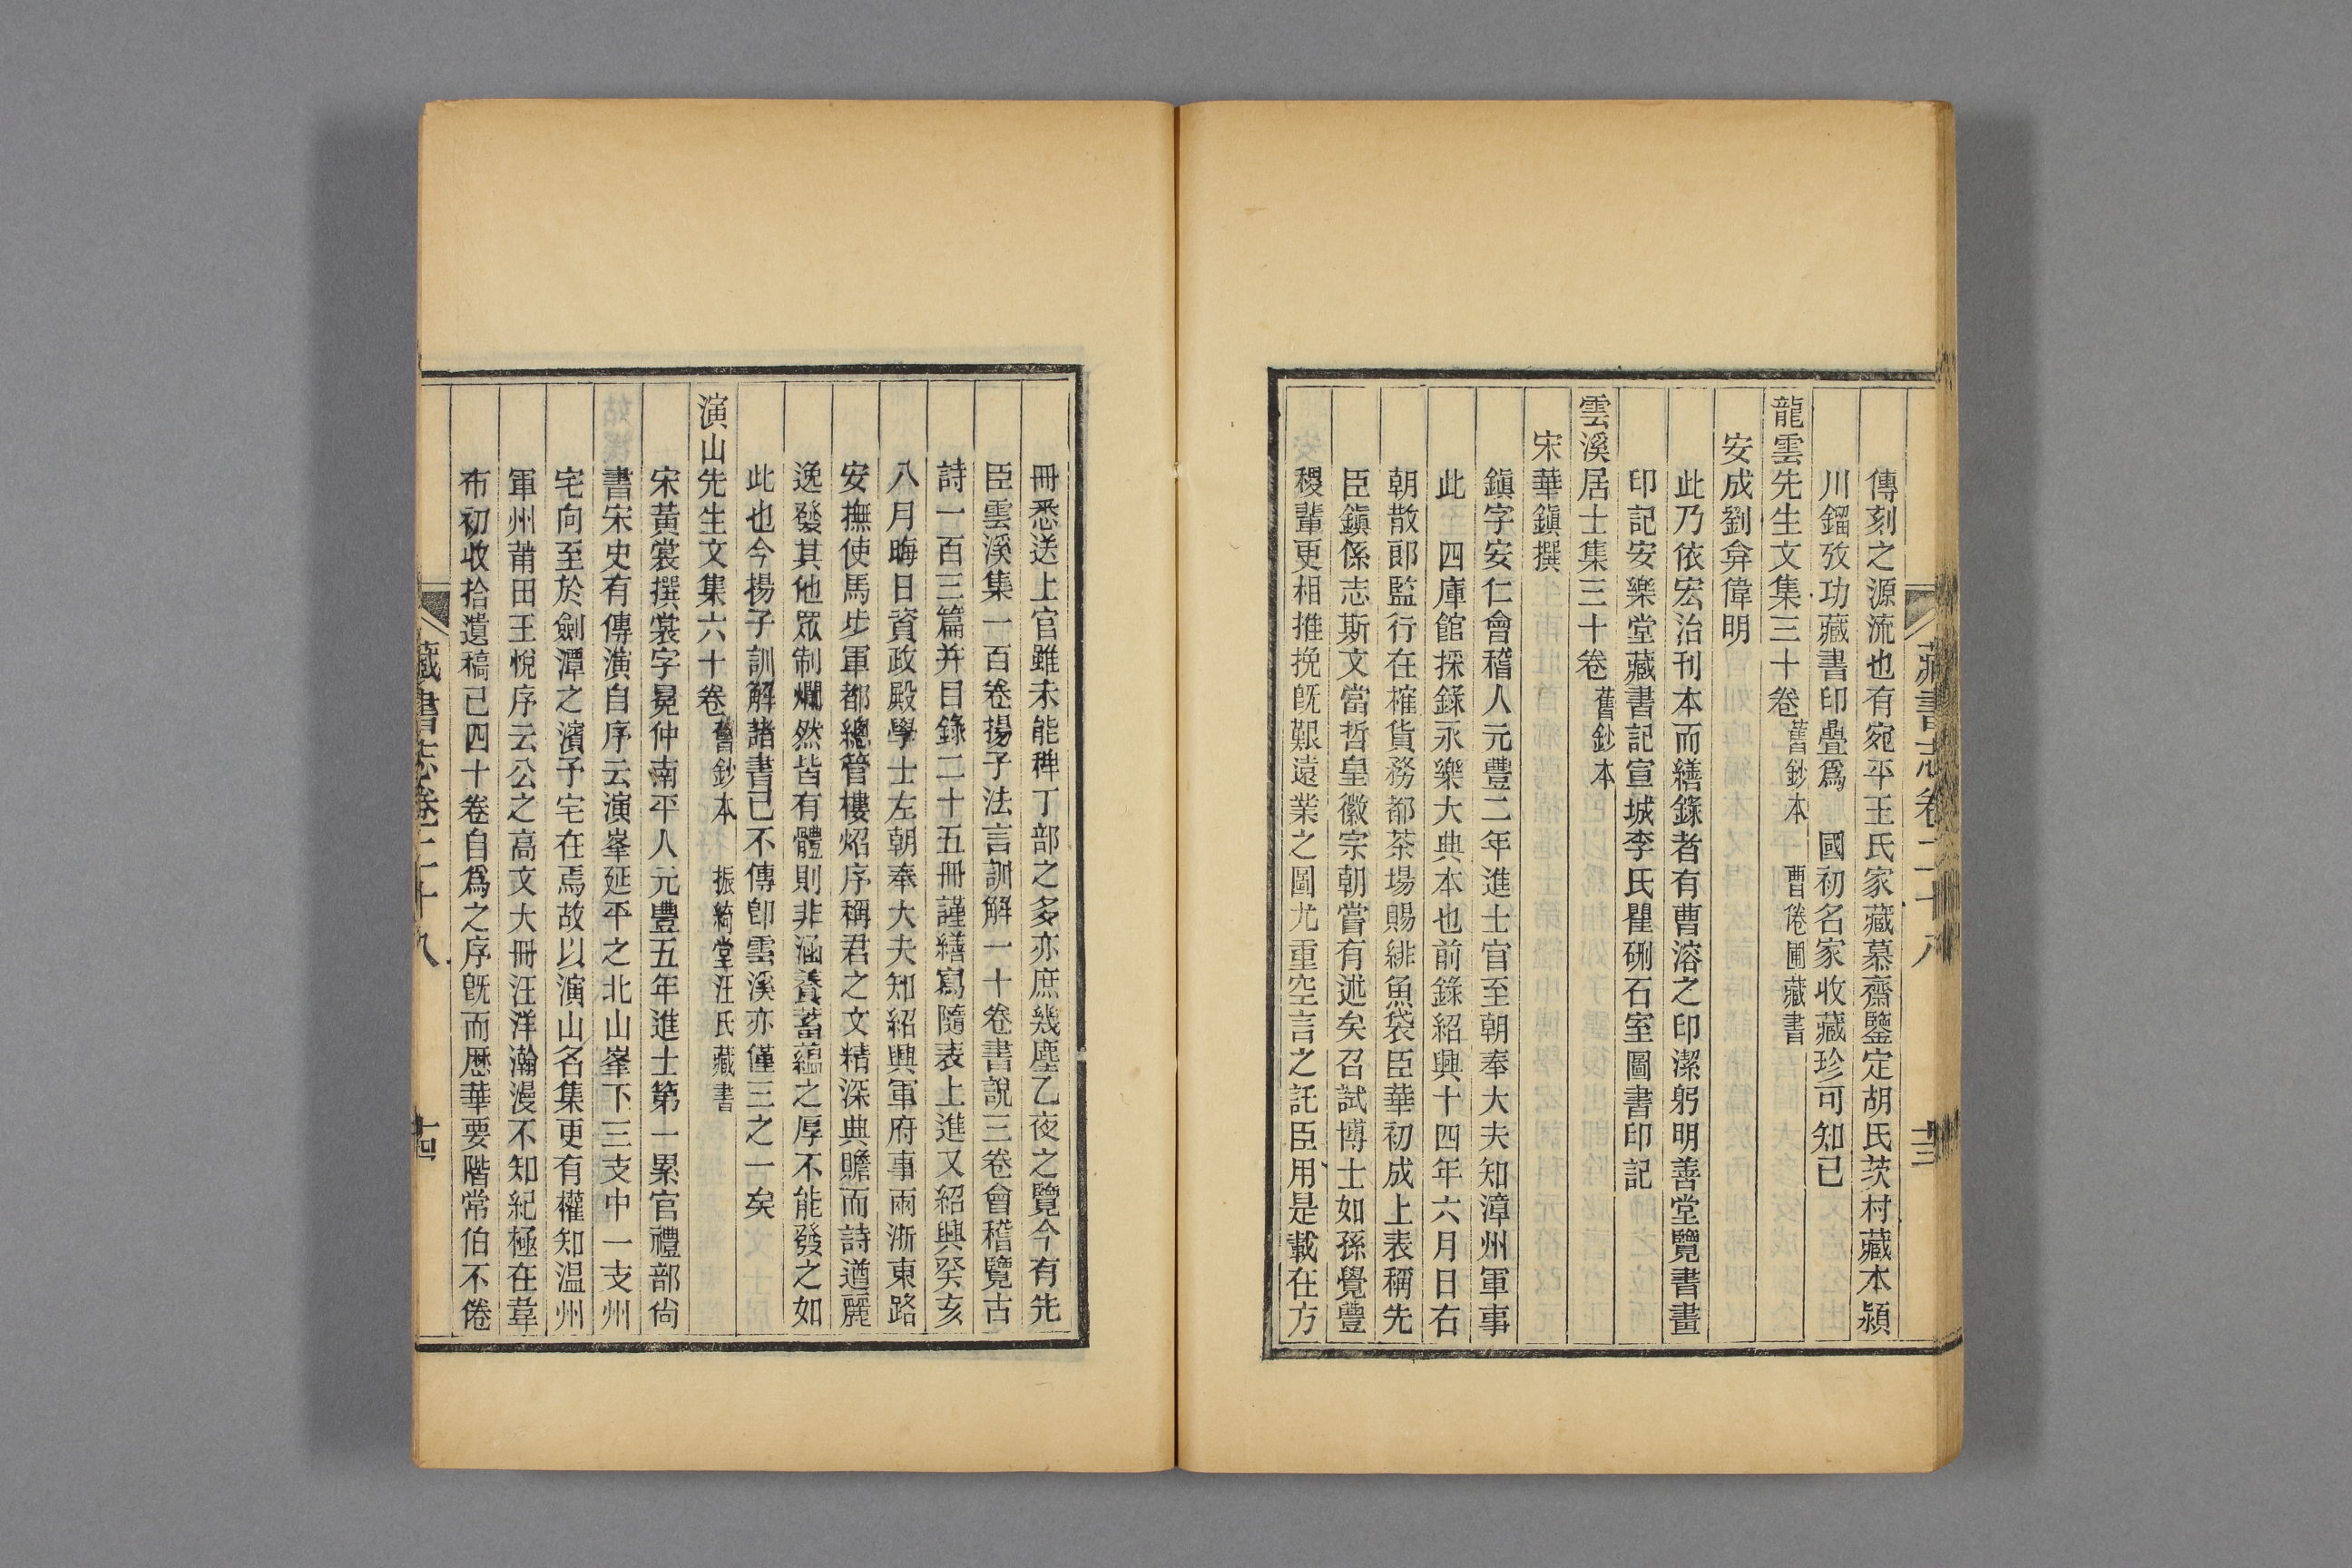 藏書志卷二十八
十三
傳刻之源流也有宛平王氏家藏慕齋鑒定胡氏茨村藏本潁
川鎦攷功藏書印疊爲　國初名家收藏珍可知已
龍雲先生文集三十卷舊鈔本　曹倦圃藏書
安成劉弇偉明
此乃依宏治刊本而繕錄者有曹溶之印潔躬明善堂覽書畫
印記安樂堂藏書記宣城李氏瞿硎石室圖書印記
雲溪居士集三十卷舊鈔本
宋華鎮撰
鎮字安仁會稽人元豐二年進士官至朝奉大夫知漳州軍事
此　四庫館採錄永樂大典本也前錄紹興十四年六月日右
朝散郎監行在榷貨務都茶場賜緋魚袋臣華初成上表稱先
臣鎮係志斯文當哲皇徽宗朝嘗有述矣召試博士如孫覺豐
稷輩更相推挽旣艱遠業之圖尤重空言之託臣用是載在方
冊悉送上官雖未能稗丁部之多亦庶幾塵乙夜之覽今有先
臣雲溪集一百卷揚子法言訓解一十卷書說三卷會稽覽古
詩一百三篇并目錄二十五冊謹繕寫隨表上進又紹興癸亥
八月晦日資政殿學士左朝奉大夫知紹興軍府事兩浙東路
安撫使馬步軍都總管樓炤序稱君之文精深典贍而詩遒麗
逸發其他眾制爛然皆有體則非涵養蓄蘊之厚不能發之如
此也今揚子訓解諸書已不傳卽雲溪亦僅三之一矣
演山先生文集六十卷舊鈔本　振綺堂汪氏藏書
宋黃裳撰裳字冕仲南平人元豐五年進士第一累官禮部尙
書宋史有傳演自序云演峯延平之北山峯下三支中一支州
宅向至於劍潭之濱予宅在焉故以演山名集更有權知温州
軍州莆田王悅序云公之高文大冊汪洋瀚漫不知紀極在韋
布初收拾遺稿已四十卷自爲之序旣而歷華要階常伯不倦
藏書志卷二十八
十四